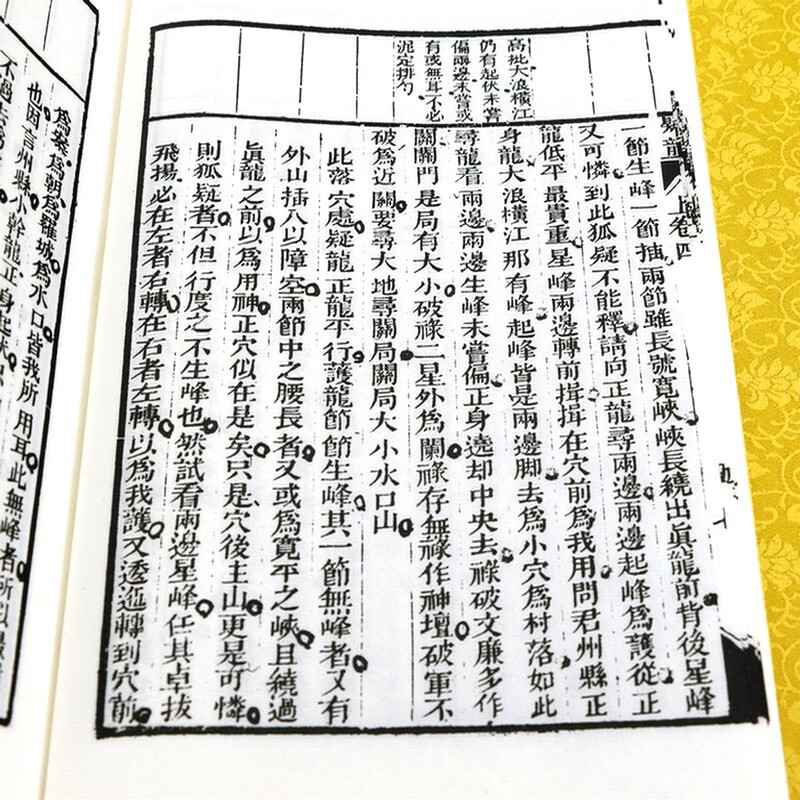 高批大浪橫江
仍有起伏未嘗
偏兩邊未嘗或
有或無耳不必
泥定排勺
疑龍
上卷四
一節生峰一節抽兩節雖長號寬峽峽長繞出眞龍前背後星峰
又可憐到此狐疑不能釋請問正龍尋兩邊兩邊起峰為護從正
龍低平最貴重星峰兩邊轉前揖揖在穴前為我用問君州縣正
身龍大浪橫江那有峰起峰皆是兩邊脚去為小穴為村落如此
尋龍看兩邊兩邊生峰未嘗偏正身遶却中央去祿破文廉多作
關關門是局有大小破祿二星外為闌祿存無祿作神壇破軍不
破為近關要尋大地尋關局關局大小水口山
此落穴處疑龍正龍平行護龍節節生峰其一節無峰者又有
外山插入以障空兩節中之腰長者又或為寬平之峽且繞過
眞龍之前以為用神正穴似在是矣只是穴後主山更是可憐
則狐疑者不但行度之不生峰也然試看兩邊星峰任其卓拔
飛揚必在左者右轉在右者左轉以為我護又透迤轉到穴前
為案為朝為羅城為水口皆我所用耳此無峰者所以最
也因言州縣小幹龍正身起伏
不過去為